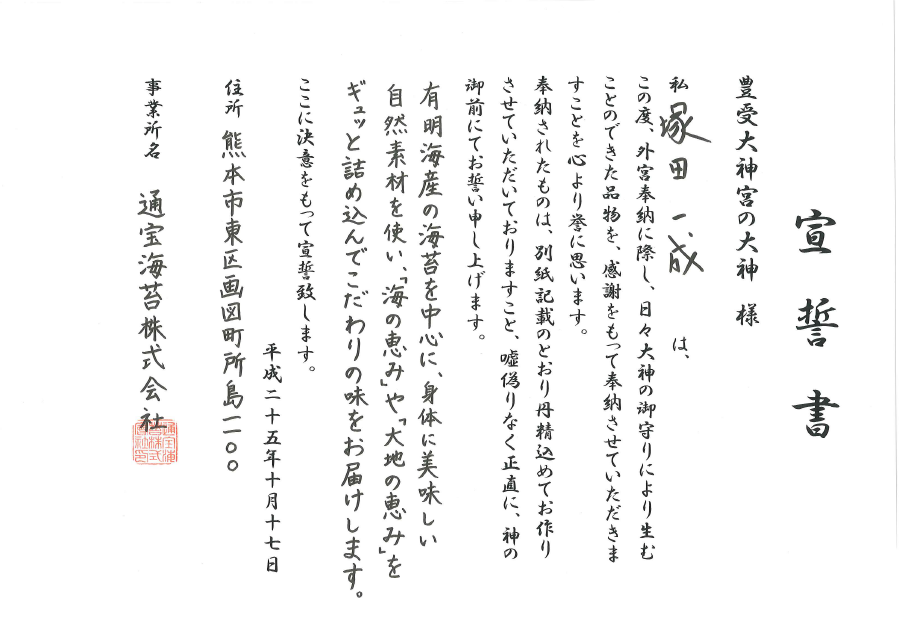 宣誓書
豊受大神宮の大神 様
私 塚田 一成 は、
この度、外宮奉納に際し、日々大神の御守りにより生む
ことのできた品物を、感謝をもって奉納させていただきま
すことを心より誉に思います。
奉納されたものは、別紙記載のとおり丹精込めてお作り
させていただいておりますこと、嘘偽りなく正直に、神の
御前にてお誓い申し上げます。
有明海産の海苔を中心に、身体に美味しい
自然素材を使い、「海の恵み」や「大地の恵み」を
ギュッと詰め込んでこだわりの味をお届けします。
ここに決意をもって宣誓致します。
平成二十五年十月十七日
住所 熊本市東区画図町所島一一〇〇
事業所名 通宝海苔株式会社